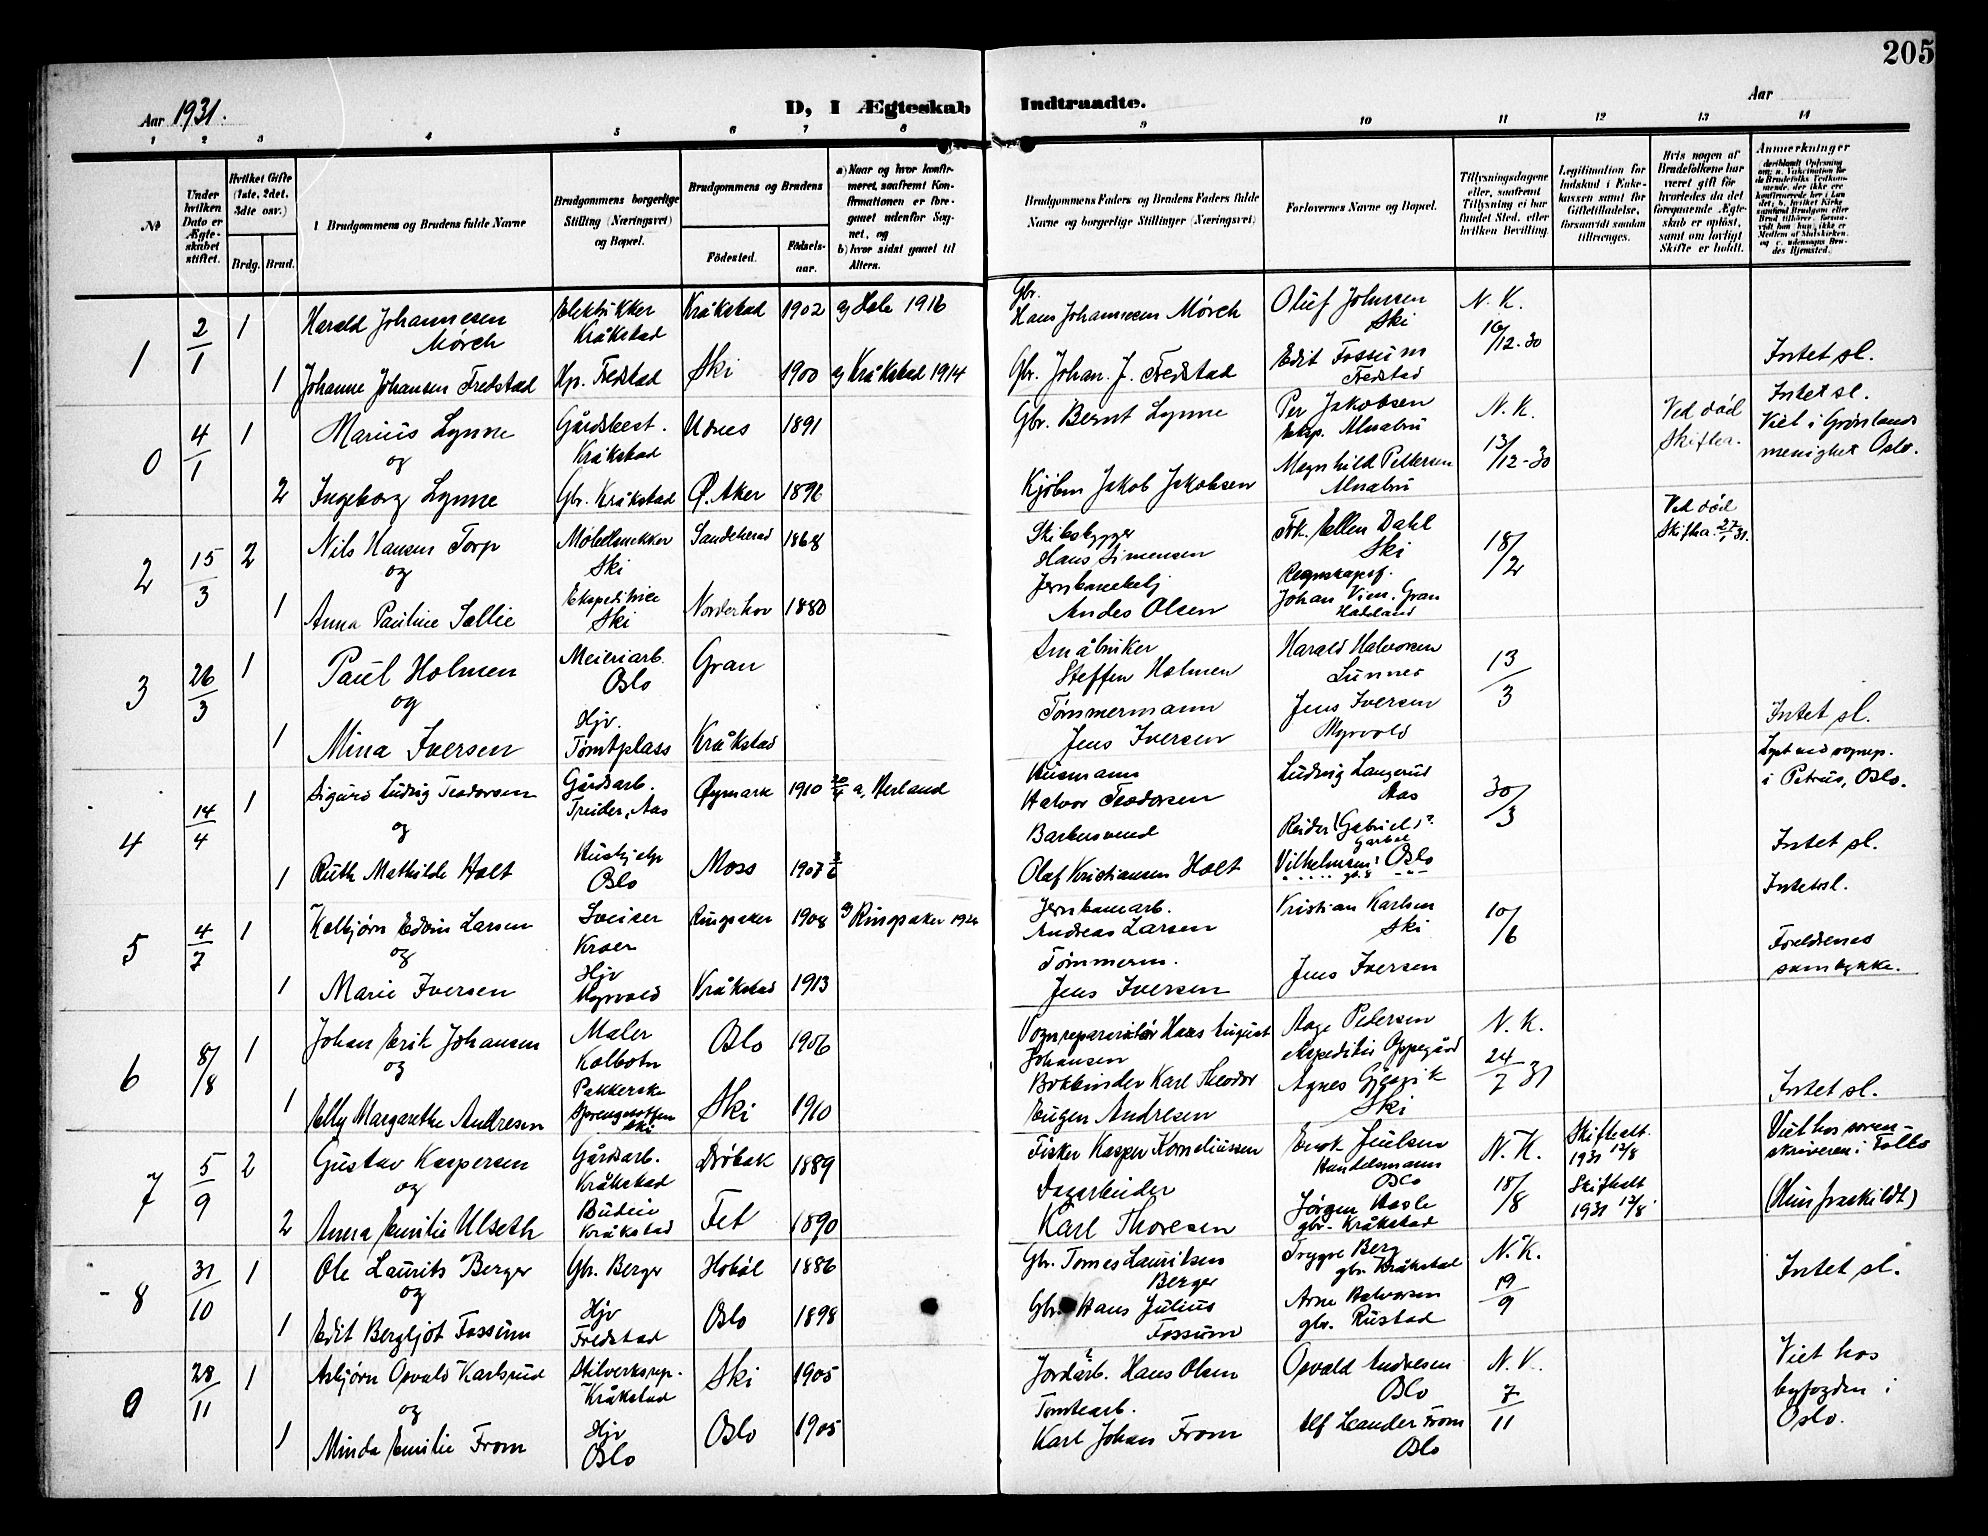 205
Aar 1931.
D, I Ægteskab Indtraadte.
Aar
1 2 3 4 5 6 7 8 9 10 11 12 13 14
№
Under hvilken Dato er Ægteskabet stiftet.
Hvilket Gifte (1ste, 2det, 3die osv.)
Brdg. Brud.
Brudgommens og Brudens fulde Navne
Brudgommens borgerlige Stilling (Næringsvei) og Bopæl.
Brudgommens og Brudens
Fødested. Fødselsaar.
a) Naar og hvor konfirmeret, saafremt Konfirmationen er foregaaet udenfor Sognet, og
b) hvor sidst gaaet til Alters.
Brudgommens Faders og Brudens Faders fulde Navne og borgerlige Stillinger (Næringsvei)
Forlovernes Navne og Bopæl.
Tillysningsdagene eller, saafremt Tillysning ei har fundet Sted, efter hvilken Bevilling.
Legitimation for Indskud i Enkekassen samt for Giftetilladelse, forsaavidt saadan tiltrænges.
Hvis nogen af Brudefolkene har været gift før hvorledes da det foregaaende Ægteskab er opløst, samt om lovligt Skifte er holdt.
Anmerkninger
1 2/1 1 Harald Johannesen Mørch Elektrikker Kråkstad Kråkstad 1902 Gbr. Hans Johannesen Mørch Oluf Johnsen Ski N. K. 16/12-30
1 Johanne Johansen Fredstad Hp. Fredstad Ski 1900 Kråkstad 1914 Gbr. Johan. J. Fredstad Edit Fossum Fredstad Intet sl.
0 4/1 1 Marius Lynne Gårdsbest. Kråkstad 1891 Gbr. Bernt Lynne Per Jakobsen Eksp. Alnabru N. K. 13/12-30 Ved død Intet sl. Viet i Grønlands menighet Oslo.
og
2 Ingeborg Lynne Gbr. Kråkstad Ø. Aker Jakob Jakobsen Magnhild Pettersen Alnabru
2 15/3 2 Nils Hansen Torp Møbelsnekker Ski Sandeherad 1868 Skibsbygger Hans Simensen Frk. Ellen Dahl Ski 18/2 Ved død
og
1 Anna Pauline Sollie Ekspeditrice Ski Norderhov 1880 Andes Olsen Regnskapsf. Johan Gran Hadeland
3 26/3 1 Paul Holmen Meieriarb. Oslo Gran Småbruker Steffen Holmen Harald Halvorsen Lunner 13/3
og
1 Mina Iversen Hjv. Tomtplass Kråkstad Tømmermann Jens Iversen Jens Iversen Myrvold Intet sl.
4 14/4 1 Sigurd Ludvig Teodorsen Gårdsarb. Aas Øymark 1910 Husmann Halvor Teodorsen Ludvig Langerud Aas 30/3 Lyst ved sognep. i Petrus, Oslo.
og
1 Ruth Mathilde Holt Hushjelp Oslo Moss 1907 Barbersvend Olaf Kristiansen Holt Reidar Gabriel Vilhelmsen Oslo Intet sl.
5 4/7 1 Kolbjørn Edvin Larsen Sveiser Kroer Ringsaker 1908 Ringsaker Jernbanearb. Andreas Larsen Kristian Karlsen Ski 10/6 Intet sl.
og
1 Marie Iversen Hjv Myrvold Kråkstad 1913 Tømmerm. Jens Iversen Jens Iversen Foreldrenes samtykke.
6 8/8 1 Johan Erik Johansen Maler Kolbotn Oslo 1906 Vognreparatør Hans August Johansen Aage Petersen Oppegård N. K. 24/7 31
og
1 Elly Margarethe Andresen Pakkerske Sprengstoffen Ski Ski 1910 Bokbinder Karl Theodor Eugen Andresen Agnes Gjersvik Ski Intet sl.
7 5/9 2 Gustav Kaspersen Gårdsarb. Kråkstad Drøbak 1889 Fisker Kasper Korneliussen Juulsen Handelsmann Oslo N. K. 18/8 Skifteatt. 1931 12/8 Viet hos sorenskriveren i Follo
og
2 Anna Emilie Ulseth Budeie Kråkstad Fet 1890 Dagarbeider Karl Thoresen Jørgen Hasle gbr. Kråkstad Skifteatt 1931 12/8 (Hun fraskildt)
8 31/10 1 Ole Laurits Berger Gbr. Berger Hobøl 1886 Gbr. Tomes Lauritsen Berger Trygve Berg gbr. Kråkstad N. K. 19/9 Intet sl.
og
1 Edit Bergljot Fossum Hjv Fredstad Oslo 1898 Gbr. Hans Julius Fossum Arne Halvorsen gbr. Rustad
0 28/11 1 Asbjørn Osvald Karlsrud Kråkstad Ski 1905 Jordarb. Hans Olsen Osvald Andresen Oslo N. K. 7/11 Viet hos byfogden i Oslo.
og
1 Minda Emilie From Hjv Oslo Oslo 1905 Tomtearb. Karl Johan From Alf Leander From Oslo